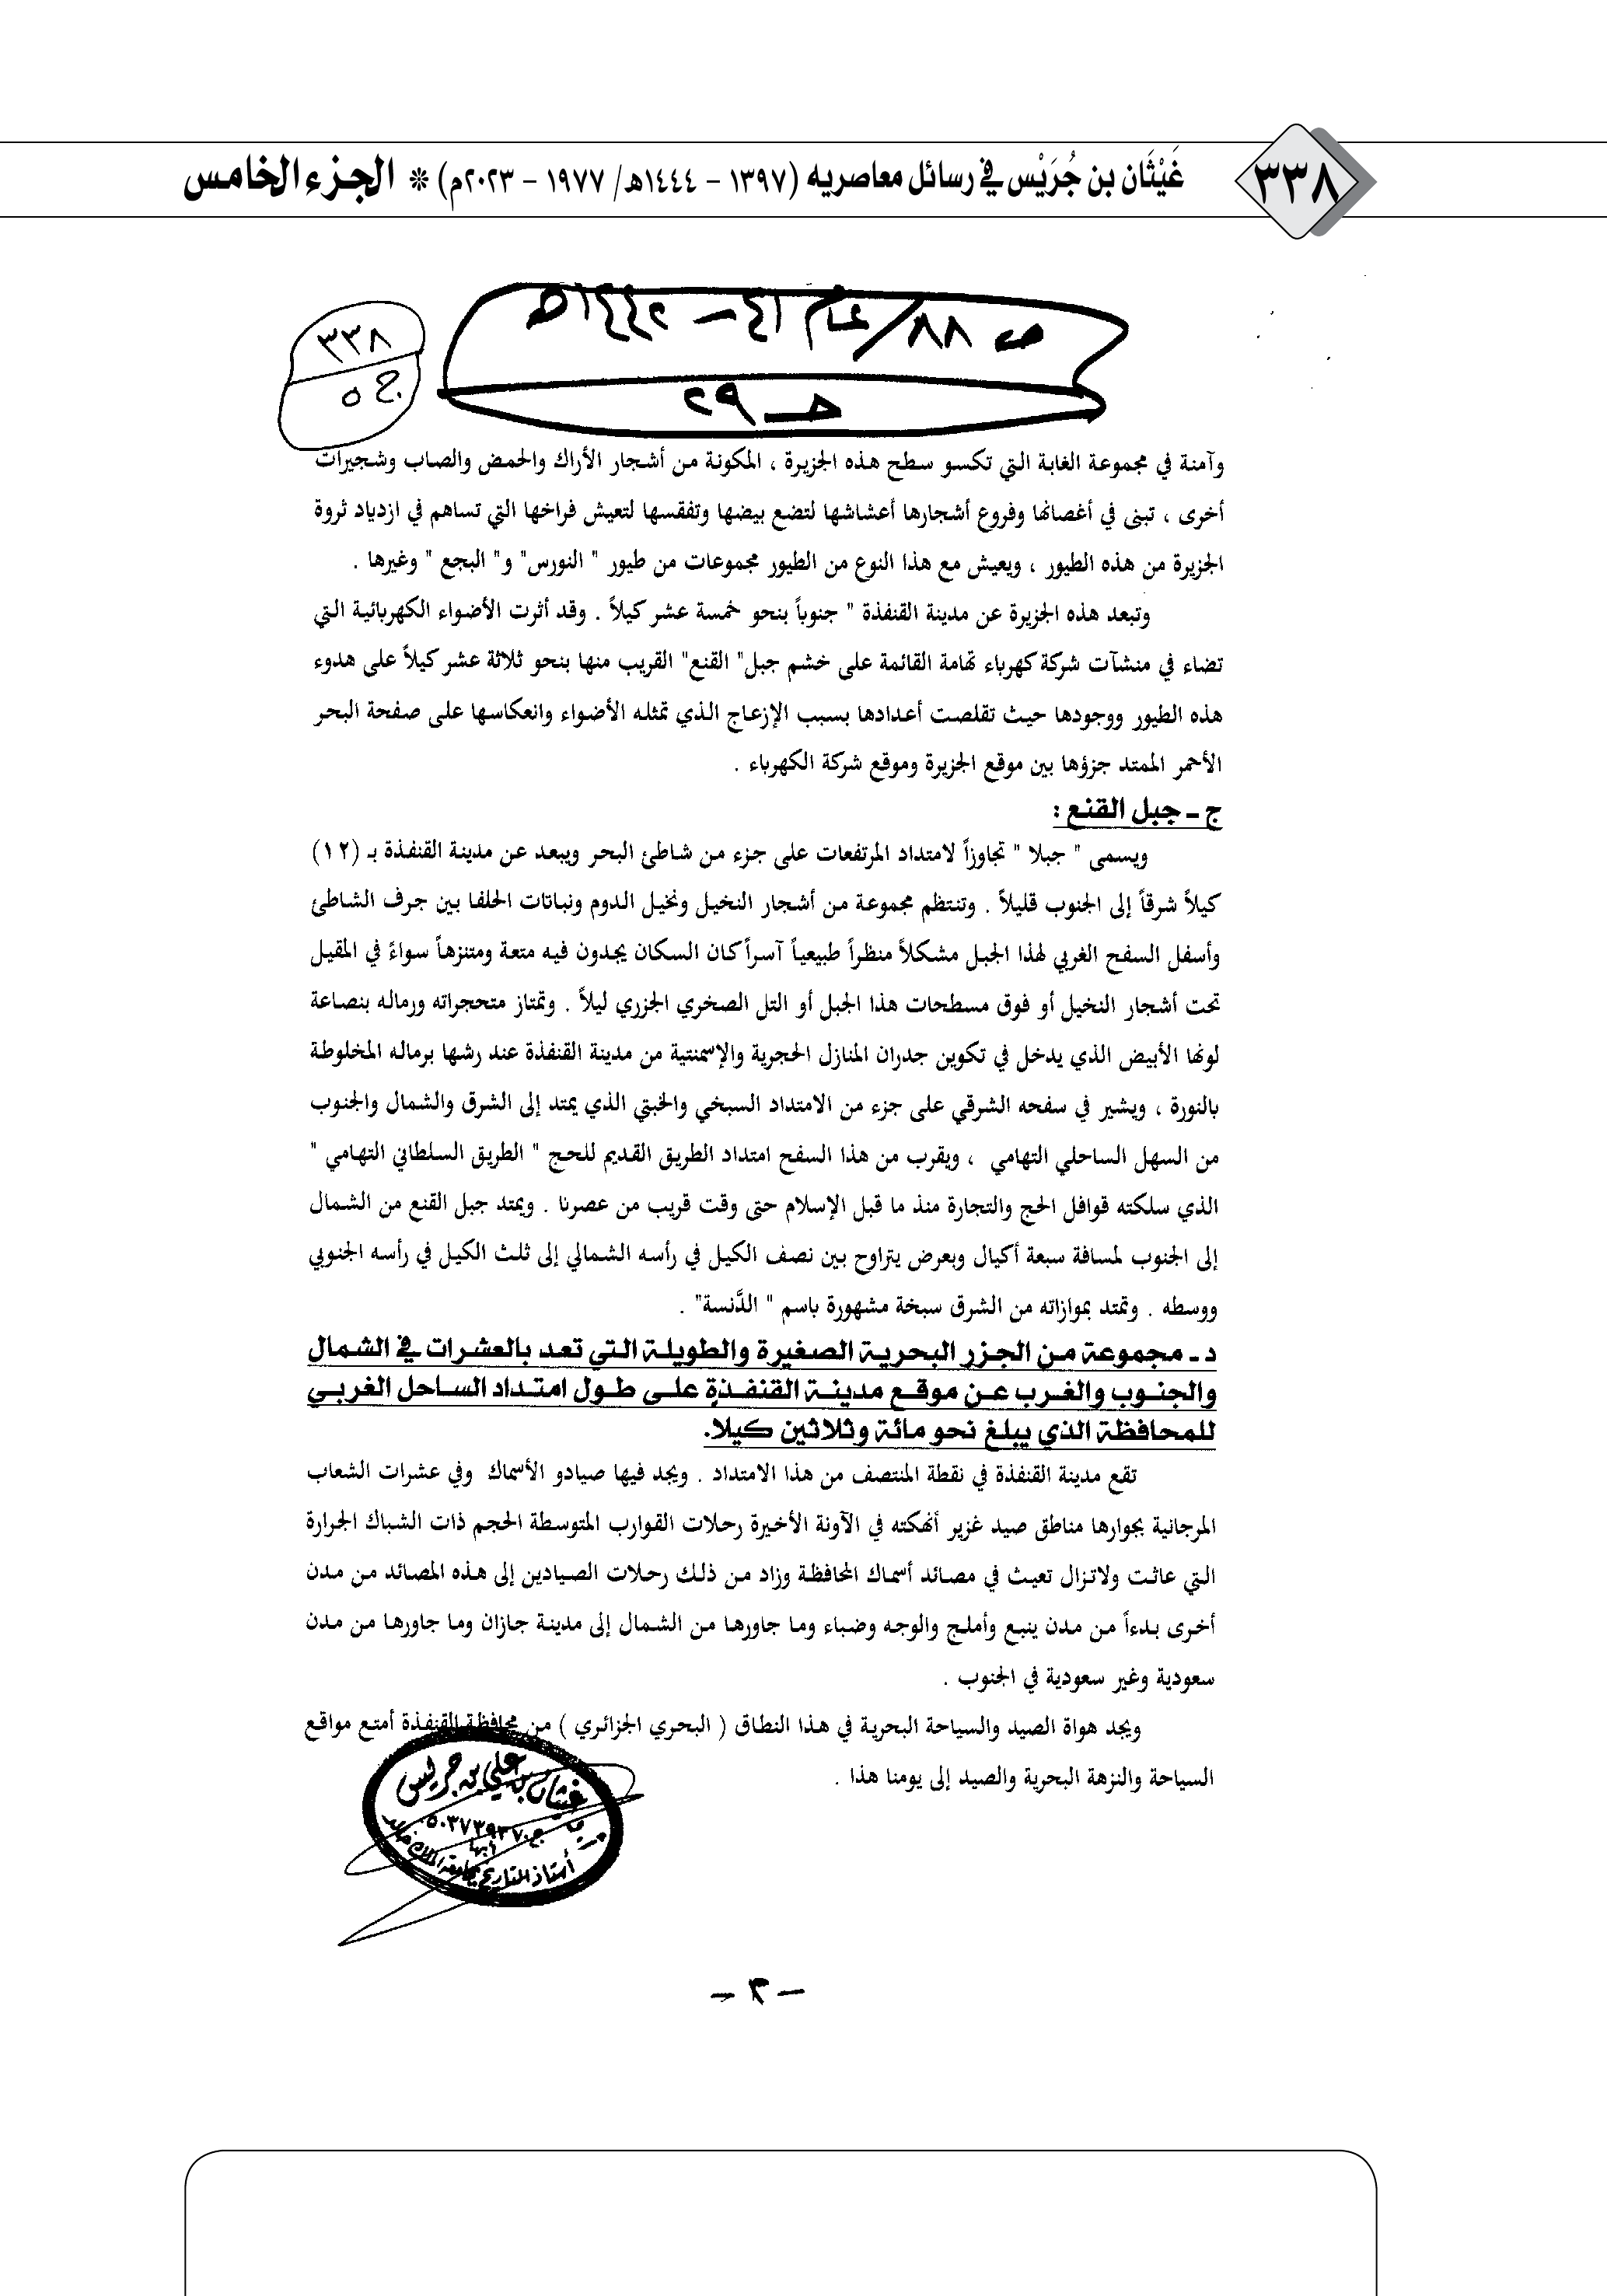 ٣٣٨
غَيْثَان بن جُرَيْس في رسائل معاصريه (١٣٩٧ - ١٤٤٤هـ/ ١٩٧٧ - ٢٠٢٣م) * الجزء الخامس
ص ٨٨/عام ٤١ - ١٤٤٢هـ
٣٣٨
ج ٥
هـ ٢٩
وآمنة في مجموعة الغابة التي تكسو سطح هذه الجزيرة ، المكونة من أشجار الأراك والحمض والصاب وشجيرات
أخرى ، تبنى في أغصانها وفروع أشجارها أعشاشها لتضع بيضها وتفقسها لتعيش فراخها التي تساهم في ازدياد ثروة
الجزيرة من هذه الطيور ، ويعيش مع هذا النوع من الطيور مجموعات من طيور " النورس" و" البجع " وغيرها .
وتبعد هذه الجزيرة عن مدينة القنفذة " جنوباً بنحو خمسة عشر كيلاً . وقد أثرت الأضواء الكهربائية التي
تضاء في منشآت شركة كهرباء تهامة القائمة على خشم جبل" القنع" القريب منها بنحو ثلاثة عشر كيلاً على هدوء
هذه الطيور ووجودها حيث تقلصت أعدادها بسبب الإزعاج الذي تمثله الأضواء وانعكاسها على صفحة البحر
الأحمر الممتد جزؤها بين موقع الجزيرة وموقع شركة الكهرباء .
ج ـ جبل القنع :
ويسمى " جبلا " تجاوزاً لامتداد المرتفعات على جزء من شاطئ البحر ويبعد عن مدينة القنفذة بـ (١٢)
كيلاً شرقاً إلى الجنوب قليلاً . وتنتظم مجموعة من أشجار النخيل ونخيل الدوم ونباتات الحلفا بين جرف الشاطئ
وأسفل السفح الغربي لهذا الجبل مشكلاً منظراً طبيعياً آسراً كان السكان يجدون فيه متعة ومتنزهاً سواءً في المقيل
تحت أشجار النخيل أو فوق مسطحات هذا الجبل أو التل الصخري الجزري ليلاً . وتمتاز متحجراته ورماله بنصاعة
لونها الأبيض الذي يدخل في تكوين جدران المنازل الحجرية والإسمنتية من مدينة القنفذة عند رشها برماله المخلوطة
بالنورة ، ويشير في سفحه الشرقي على جزء من الامتداد السبخي والخبتي الذي يمتد إلى الشرق والشمال والجنوب
من السهل الساحلي التهامي ، ويقرب من هذا السفح امتداد الطريق القديم للحج " الطريق السلطاني التهامي "
الذي سلكته قوافل الحج والتجارة منذ ما قبل الإسلام حتى وقت قريب من عصرنا . ويمتد جبل القنع من الشمال
إلى الجنوب لمسافة سبعة أكيال وبعرض يتراوح بين نصف الكيل في رأسه الشمالي إلى ثلث الكيل في رأسه الجنوبي
ووسطه . وتمتد بموازاته من الشرق سبخة مشهورة باسم " الدَّنسة" .
د ـ مجموعة من الجزر البحرية الصغيرة والطويلة التي تعد بالعشرات في الشمال
والجنوب والغرب عن موقع مدينة القنفذة على طول امتداد الساحل الغربي
للمحافظة الذي يبلغ نحو مائة وثلاثين كيلا.
تقع مدينة القنفذة في نقطة المنتصف من هذا الامتداد . ويجد فيها صيادو الأسماك وفي عشرات الشعاب
المرجانية بجوارها مناطق صيد غزير أنهكته في الآونة الأخيرة رحلات القوارب المتوسطة الحجم ذات الشباك الجرارة
التي عاثت ولاتزال تعيث في مصائد أسماك المحافظة وزاد من ذلك رحلات الصيادين إلى هذه المصائد من مدن
أخرى بدءاً من مدن ينبع وأملج والوجه وضباء وما جاورها من الشمال إلى مدينة جازان وما جاورها من مدن
سعودية وغير سعودية في الجنوب .
ويجد هواة الصيد والسياحة البحرية في هذا النطاق ( البحري الجزائري ) من محافظة القنفذة أمتع مواقع
السياحة والنزهة البحرية والصيد إلى يومنا هذا .
غيثان بن علي بن جريس
ج. ٠٥٠٣٧٣٩٣٧
أبها
أستاذ التاريخ بجامعة الملك خالد
- ٣ -